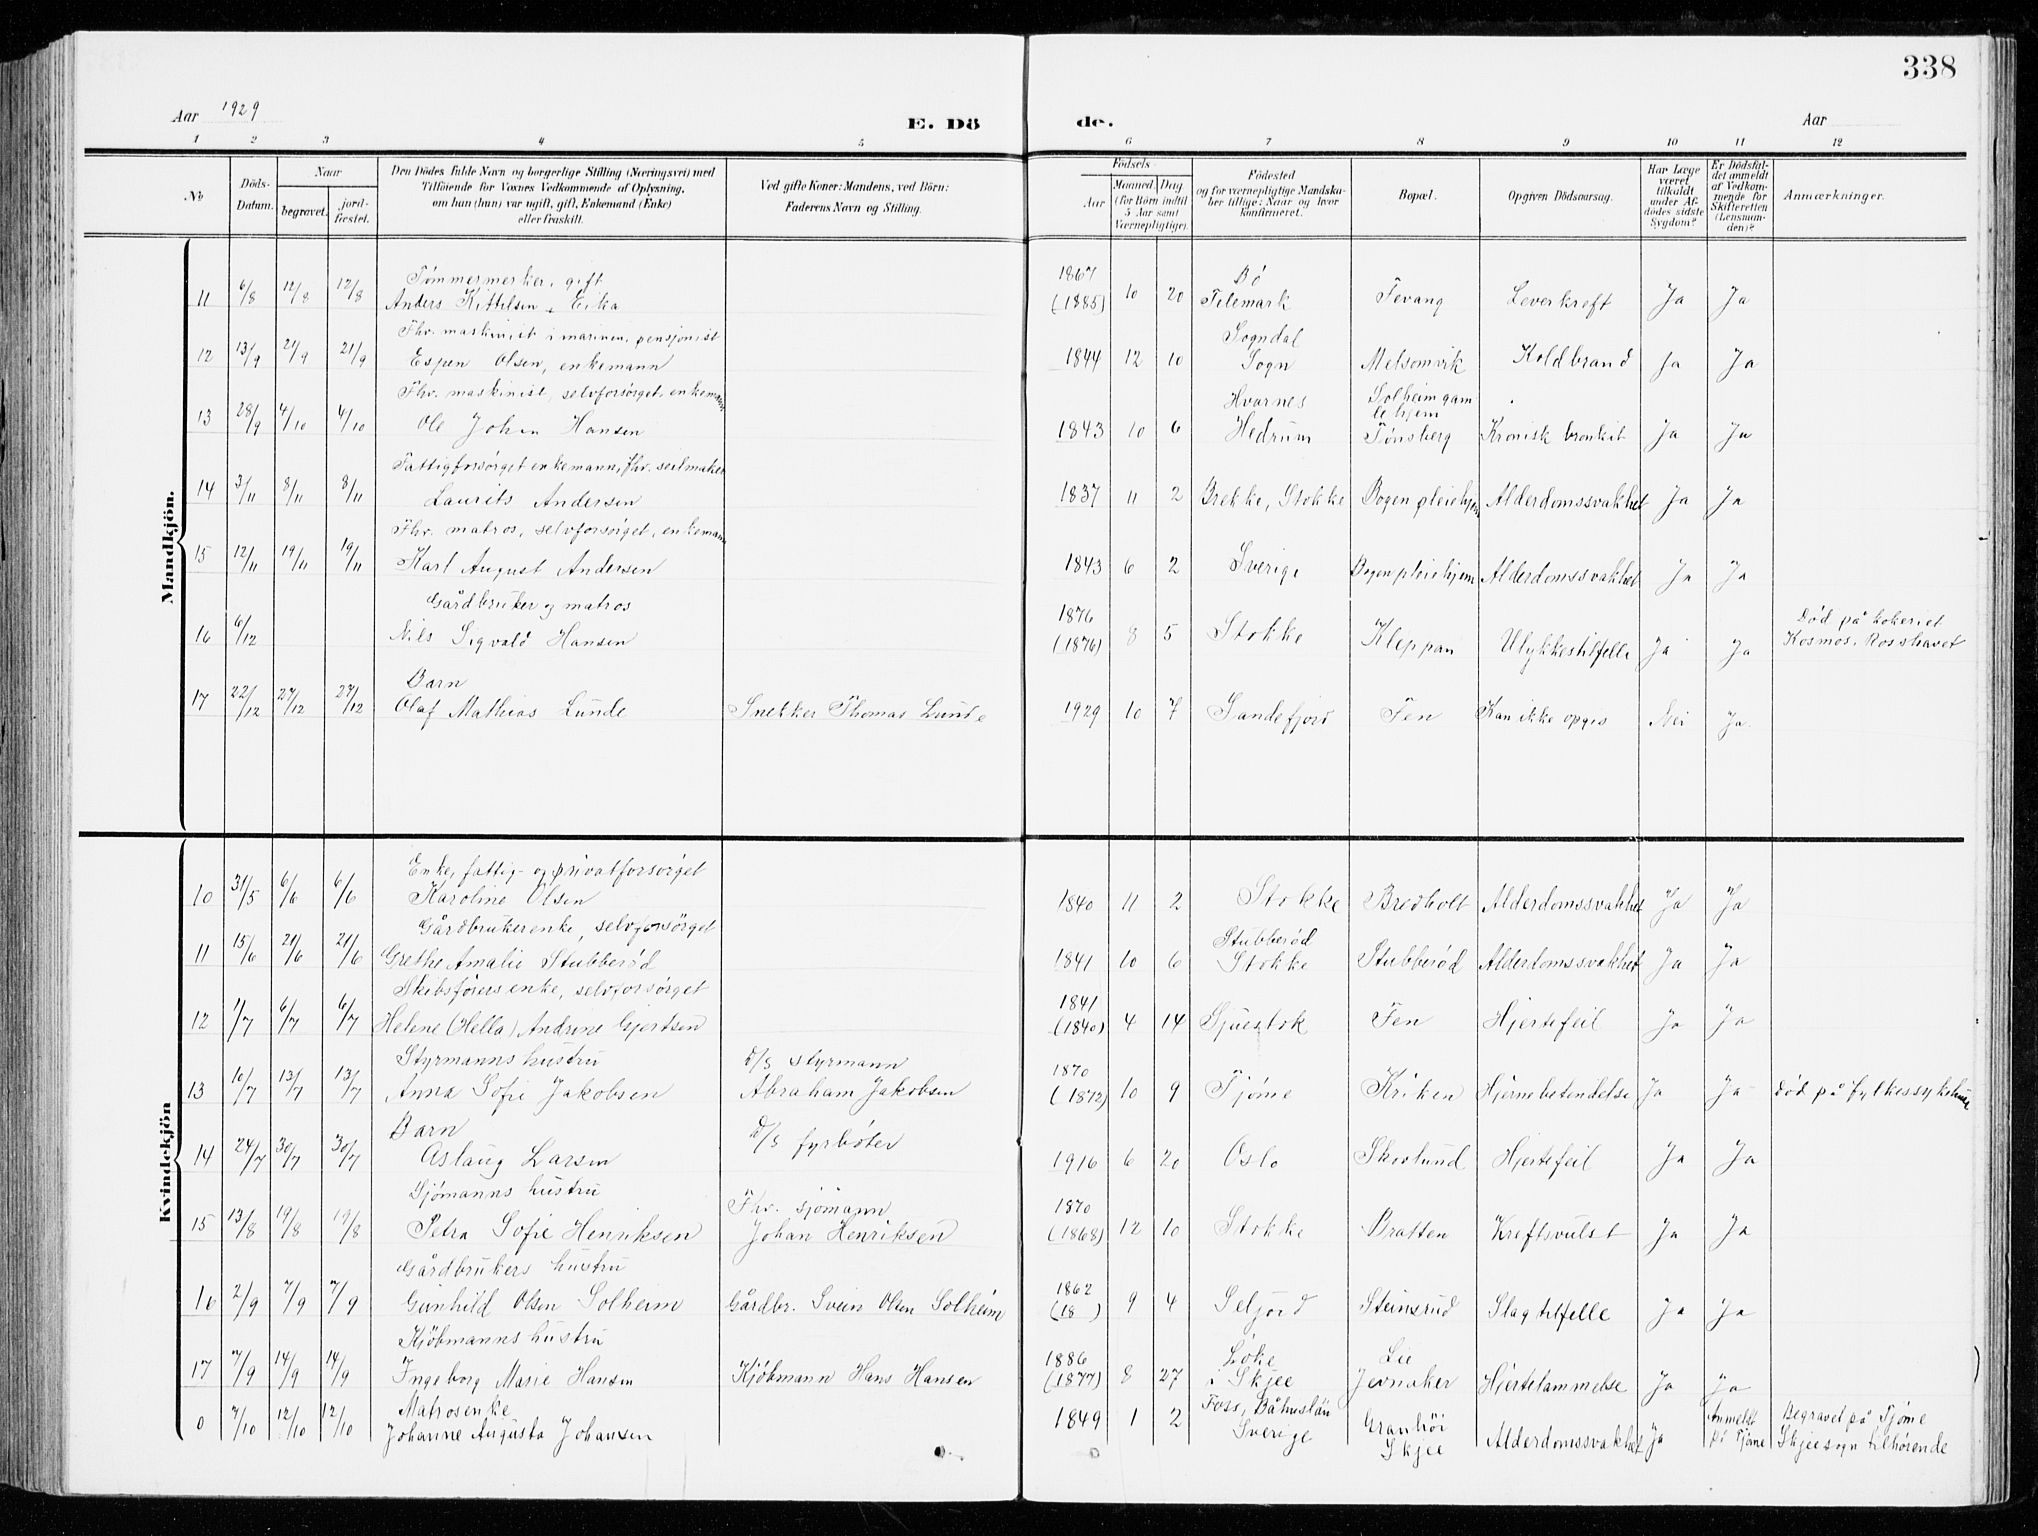 338
Aar 1929
E. Dö
de.
Aar
1 2 3 4 5 6 7 8 9 10 11 12
No
Döds-Datum.
Naar
begravet.
jord-festet.
Den Dödes fulde Navn og borgerlige Stilling (Næringsvei) med
Tilföiende for Voxnes Vedkommende af Oplysning,
om han (hun) var ugift, gift, Enkemand (Enke)
eller fraskilt.
Ved gifte Koner: Mandens, ved Börn:
Faderens Navn og Stilling.
Födsels
Aar
Maaned Dag
(for Börn indtil
5 Aar samt
Værnepligtige).
Födested
og for værnepligtige Mandska-
ber tillige: Naar og hvor
konfirmeret.
Bopæl.
Opgiven Dödsaarsag.
Har Læge
været
tilkaldt
under Af-
dödes sidste
Sygdom?
Er Dödsfal-
det anmeldt
af Vedkom-
mende for
Skifteretten
(Lensman-
den)?
Anmærkninger.
Mandkjön.
Tømmermerker, gift 1867 Bø
11 6/8 12/8 12/8 Anders Kittilsen Eika (1885) 10 20 Telemark Tevang Leverkreft Ja Ja
Fhv. maskinist i marinen, pensjonist Sogndal
12 13/9 21/9 21/9 Espen Olsen, enkemann 1844 12 10 Sogn Melsomvik Koldbrand Ja Ja
Fhv. maskinist, selvforsørget, enkemann Hvarnes Solheim gamlehjem
13 28/9 4/10 4/10 Ole Johan Hansen 1843 10 6 Hedrum Tønsberg Kronisk bronkit Ja Ja
Fattigforsørget enkemann, fhv. seilmaker
14 3/11 8/11 8/11 Laurits Andersen 1837 11 2 Brekke, Stokke Bogen pleiehjem Alderdomssvakhet Ja Ja
Fhv. matros, selvforsørget, enkemann
15 12/11 19/11 19/11 Karl August Andersen 1843 6 2 Sverige Bogen pleiehjem Alderdomssvakhet Ja Ja
Gårdbruker og matros 1876 Død på kokeriet
16 6/12 Nils Sigvald Hansen (1876) 8 5 Stokke Kleppan Ulykkestilfelle Ja Ja Kosmos. Rosshavet
Barn
17 22/12 27/12 27/12 Olaf Mathias Lunde Snekker Thomas Lunde 1929 10 7 Sandefjord Fen Kan ikke opgis Nei Ja
Kvindekjön
Enke, fattig- og privatforsørget
10 31/5 6/6 6/6 Karoline Olsen 1840 11 2 Stokke Bredholt Alderdomssvakhet Ja Ja
Gårdbrukerenke, selvforsørget Stubberød
11 15/6 21/6 21/6 Grethe Amalie Stubberød 1841 10 6 Stokke Stubberød Alderdomssvakhet Ja Ja
Skibsførers enke, selvforsørget 1841
12 1/7 6/7 6/7 Helene (Hella) Andrine Gjertsen (1840) 4 14 Sjuestok Fen Hjertefeil Ja Ja
Styrmanns hustru D/S styrmann 1870
13 10/7 13/7 13/7 Anna Sofie Jakobsen Abraham Jakobsen (1872) 10 9 Tjøme Kriken Hjernebetendelse Ja Ja Død på fylkessykehuse
Barn D/S fyrbøter
14 24/7 30/7 30/7 Aslaug Larsen 1916 6 20 Oslo Skovlund Hjertefeil Ja Ja
Sjømanns hustru Fhv. sjømann 1870
15 13/8 19/8 19/8 Petra Sofie Henriksen Johan Henriksen (1868) 12 10 Stokke Bratten Kreftsvulst Ja Ja
Gårdbrukers hustru 1862
16 2/9 7/9 7/9 Gunhild Olsen Solheim Gårdbr. Svein Olsen Solheim (18 ) 9 4 Seljord Steinsrud Slagtilfelle Ja Ja
Kjøbmanns hustru 1886 Løke Lie
17 7/9 14/9 14/9 Ingeborg Marie Hansen Kjøbmann Hans Hansen (1877) 8 27 i Skjee Jevnaker Hjertelammelse Ja Ja
Matrosenke Foss, Båhuslän Granhöi Anmeldt Begravet på Tjøme
0 7/10 12/10 12/10 Johanne Augusta Johansen 1849 1 2 Sverige Skjee Alderdomssvakhet Ja på Tjøme Skjee sogn tilhørende